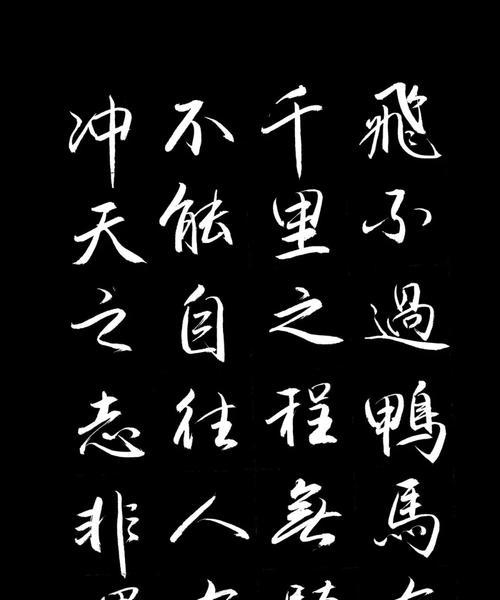 飛不過鴨馬
千里之程無
不能自往人
冲天之志非